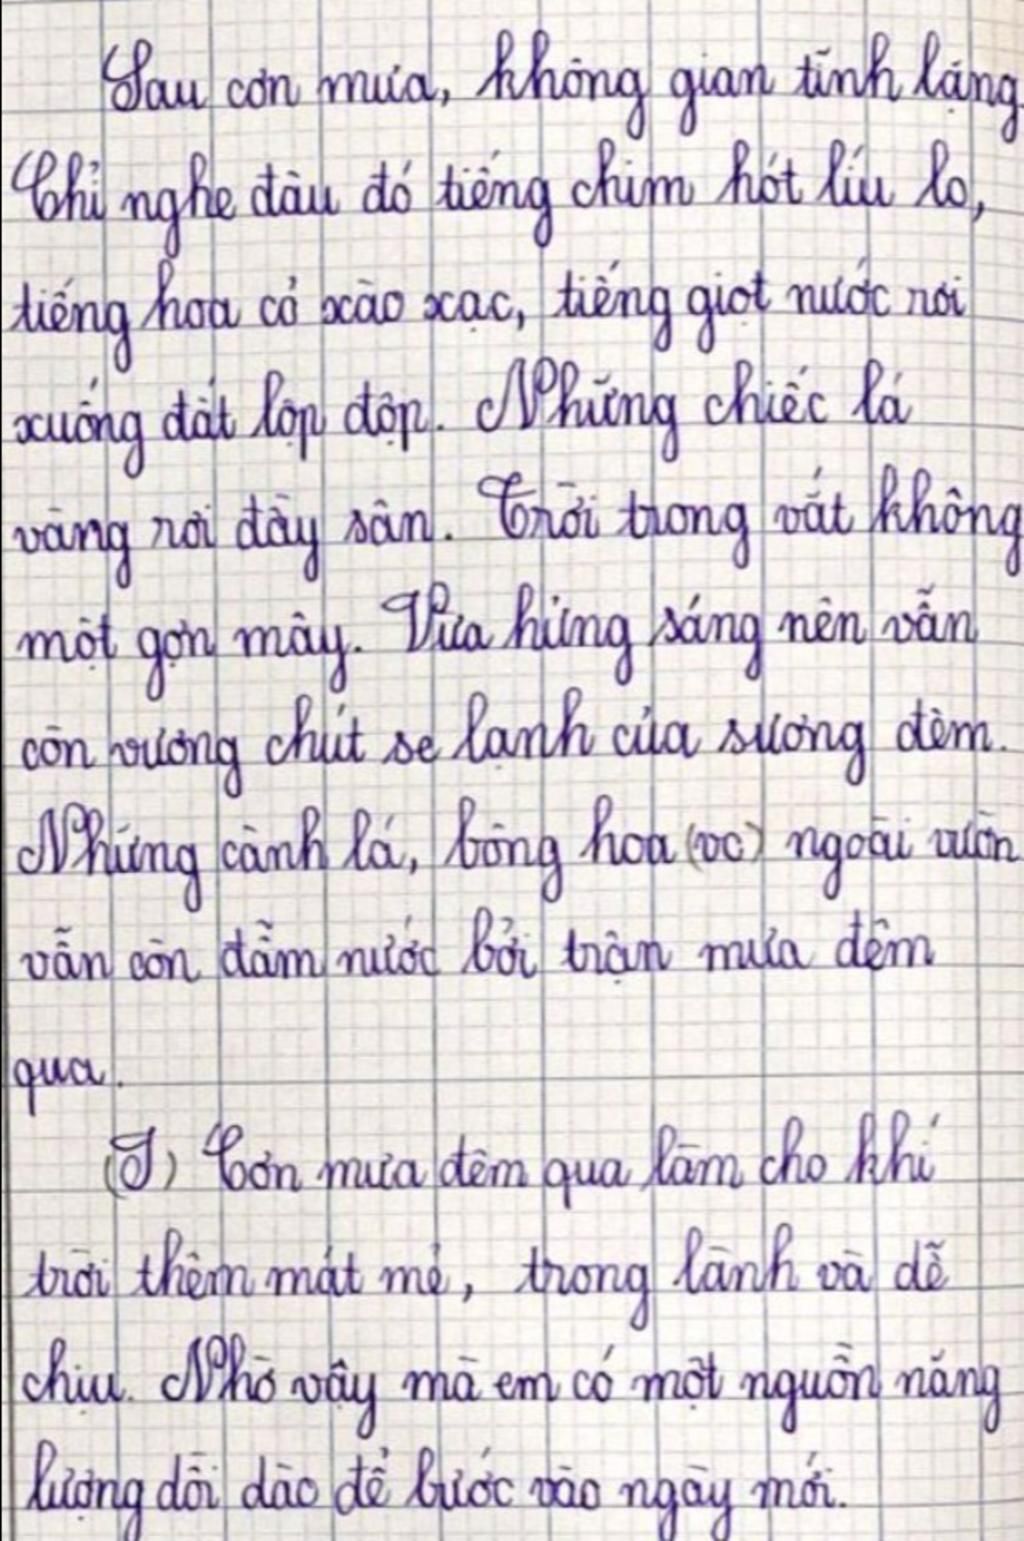 Sau cơn mưa, không gian tĩnh lặng
Chỉ nghe đâu đó tiếng chim hót líu lo,
tiếng hoa cỏ xào xạc, tiếng giọt nước rơi
xuống đất lộp độp. Những chiếc lá
vàng rơi đầy sân. Trời trong vắt không
một gợn mây. Vừa hửng sáng nên vẫn
còn vương chút se lạnh của sương đêm.
Những cành lá, bông hoa (vc) ngoài vườn
vẫn còn đẫm nước bởi trận mưa đêm
qua.
(J) Cơn mưa đêm qua làm cho khí
trời thêm mát mẻ, trong lành và dễ
chịu. Nhờ vậy mà em có một nguồn năng
lượng dồi dào để bước vào ngày mới.